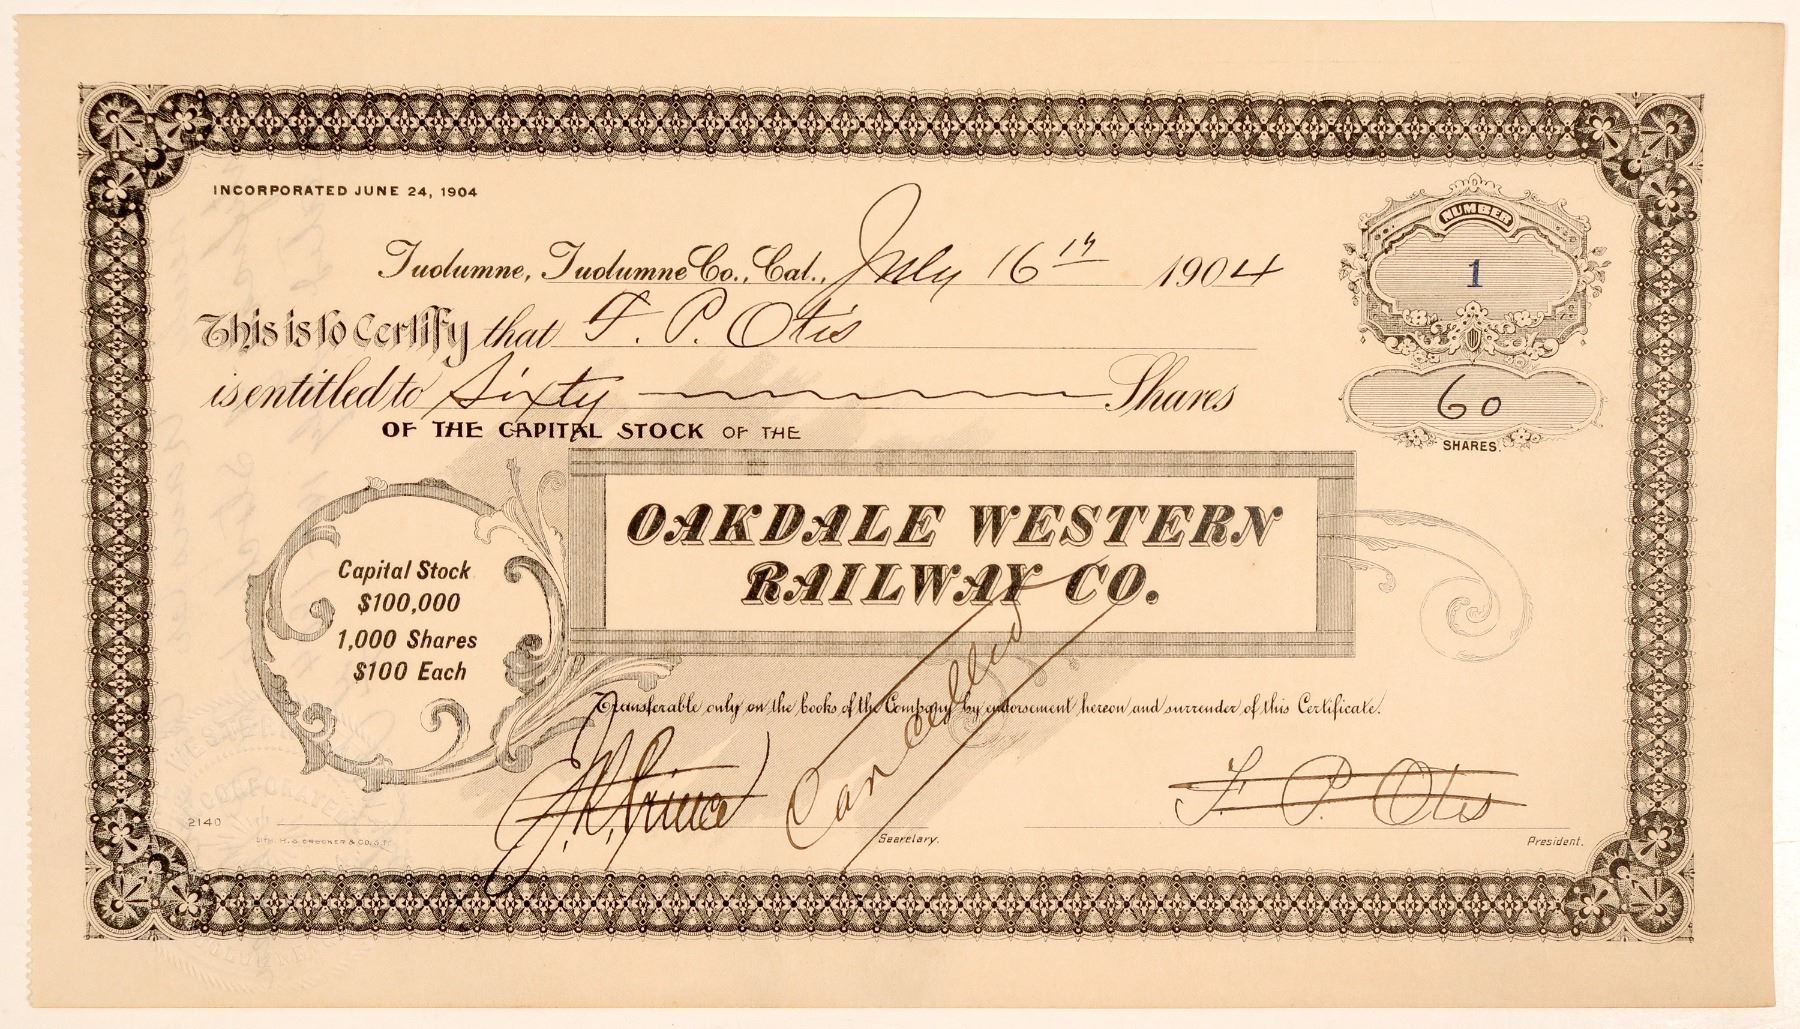 INCORPORATED JUNE 24, 1904
NUMBER
1
Tuolumne, Tuolumne Co., Cal., July 16th 1904
This is to Certify that F. P. Otis
is entitled to Sixty Shares
60
SHARES.
OF THE CAPITAL STOCK OF THE
OAKDALE WESTERN
RAILWAY CO.
Capital Stock
$100,000
1,000 Shares
$100 Each
Cancelled
Transferable only on the books of the Company by endorsement hereon and surrender of this Certificate.
F. P. Otis
2140
Secretary.
President.
LITH. H.S. CROCKER & CO. S.F.